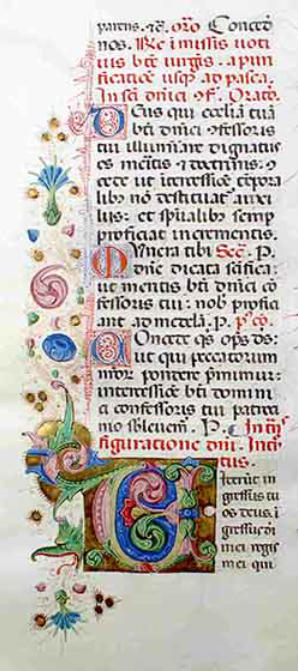 parens. &c. oro Conced
nos. Re i missis voti
uis bte uirgis. a puri
ficatioe usq ad pasca.
In sci dnici 9f. Orato.
Deus qui eccliā tuā
bti dnici 9fessoris
tui illuminare dignatus
es meritis & doctrinis: 9
cede ut iteressiōe tēpora
libus nō destituat auxi
liis: et spūalibus semp
proficiat incrementis.
Munera tibi Sec. P.
dnē dicata sāfica:
ut meritis bti dnici cō
fessoris tui. nob profici
ant ad medelā. P. P co.
Concede qs ops ds:
ut qui peccatorum
nrōr pondere pmimur:
intercessiōe bti domini
ci confessoris tui patroci
nio sblevem. P. In trās
figuratione dni. Introi
tus.
Illuxerūt in
gressus tu
os deus. i
gressus dei
mei regis
mei qui